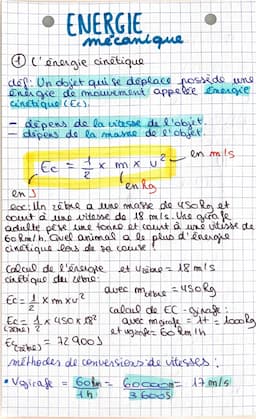 ENERGIE
mécanique
① L'énergie cinétique
déf: Un objet qui se déplace possède une
énergie de mouvement appelée énergie
cinétique (Ec).
- dépens de la vitesse de l'objet.
- dépens de la masse de l'objet.
Ec = 1/2 × m × v²
en m/s
en J
en kg
ex: Un zèbre a une masse de 450kg et
court à une vitesse de 18 m/s. Une girafe
adulte pèse une tonne et court à une vitesse de
60 km/h. Quel animal a le plus d'énergie
cinétique lors de sa course?
Calcul de l'énergie
cinétique du zèbre:
et vzèbre = 18 m/s
avec mzèbre = 450 kg
Ec = 1/2 × m × v²
Ec (zèbre) = 1/2 × 450 × 18²
Ec (zèbre) = 72 900 J
calcul de EC - girafe:
avec mgirafe = 1t = 1000kg
et vgirafe = 60 km/h
méthodes de conversions de vitesses:
• Vgirafe = 60km / 1h = 60000m / 3600s = 17 m/s